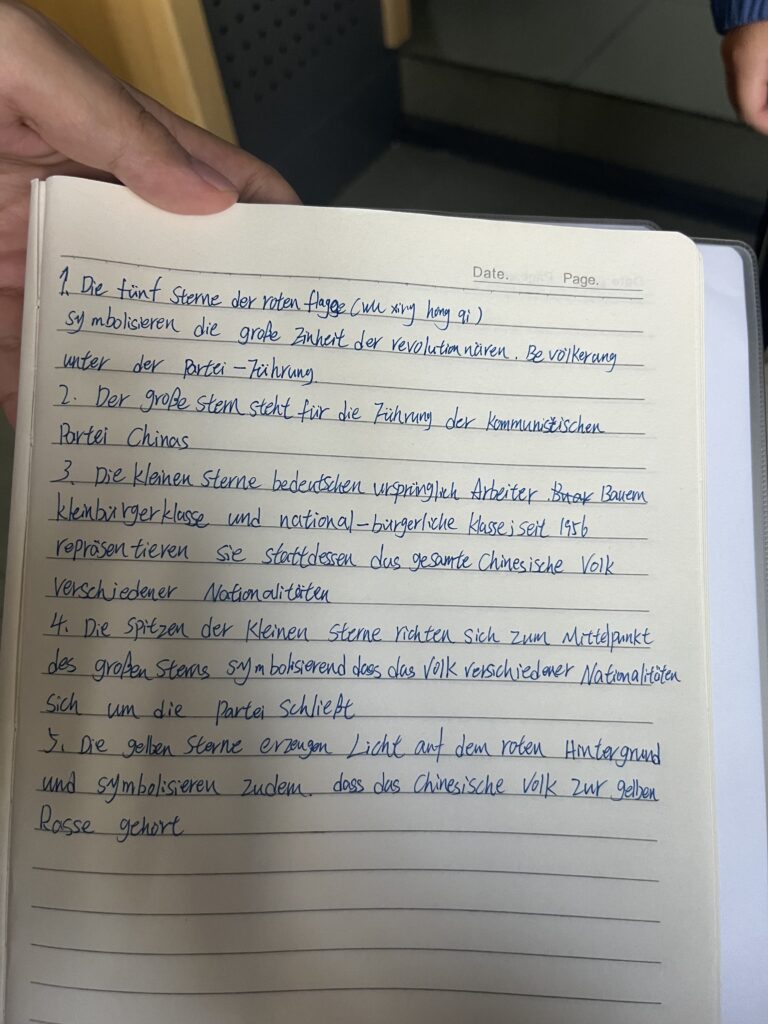 Date. Page.
1. Die fünf Sterne der roten flagge (wu xing hong qi)
symbolisieren die große Einheit der revolutionären. Bevölkerung
unter der Partei-Führung.
2. Der große Stern steht für die Führung der kommunistischen
Partei Chinas
3. Die kleinen Sterne bedeutschen ursprünglich Arbeiter. Bauern
kleinbürgerklasse und national-bürgerliche klasse; seit 1956
repräsentieren sie stattdessen das gesamte Chinesische Volk
verschiedener Nationalitäten
4. Die Spitzen der kleinen Sterne richten sich zum Mittelpunkt
des großen Sterns symbolisierend dass das Volk verschiedener Nationalitäten
sich um die Partei schließt
5. Die gelben Sterne erzeugen Licht auf dem roten Hintergrund
und symbolisieren zudem. dass das Chinesische Volk zur gelben
Rasse gehört